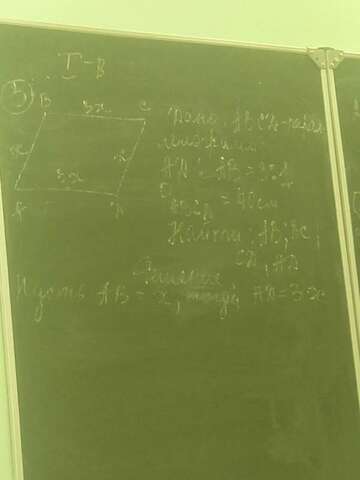 I-В
5
B 3x C
x x
3x
A D
Дано: ABCD-парал
лелограмм
AD : AB = 3:1
P ABCD = 40см
Найти: AB; BC;
CD; AD
Решение
Пусть AB = x, тогда AD = 3x